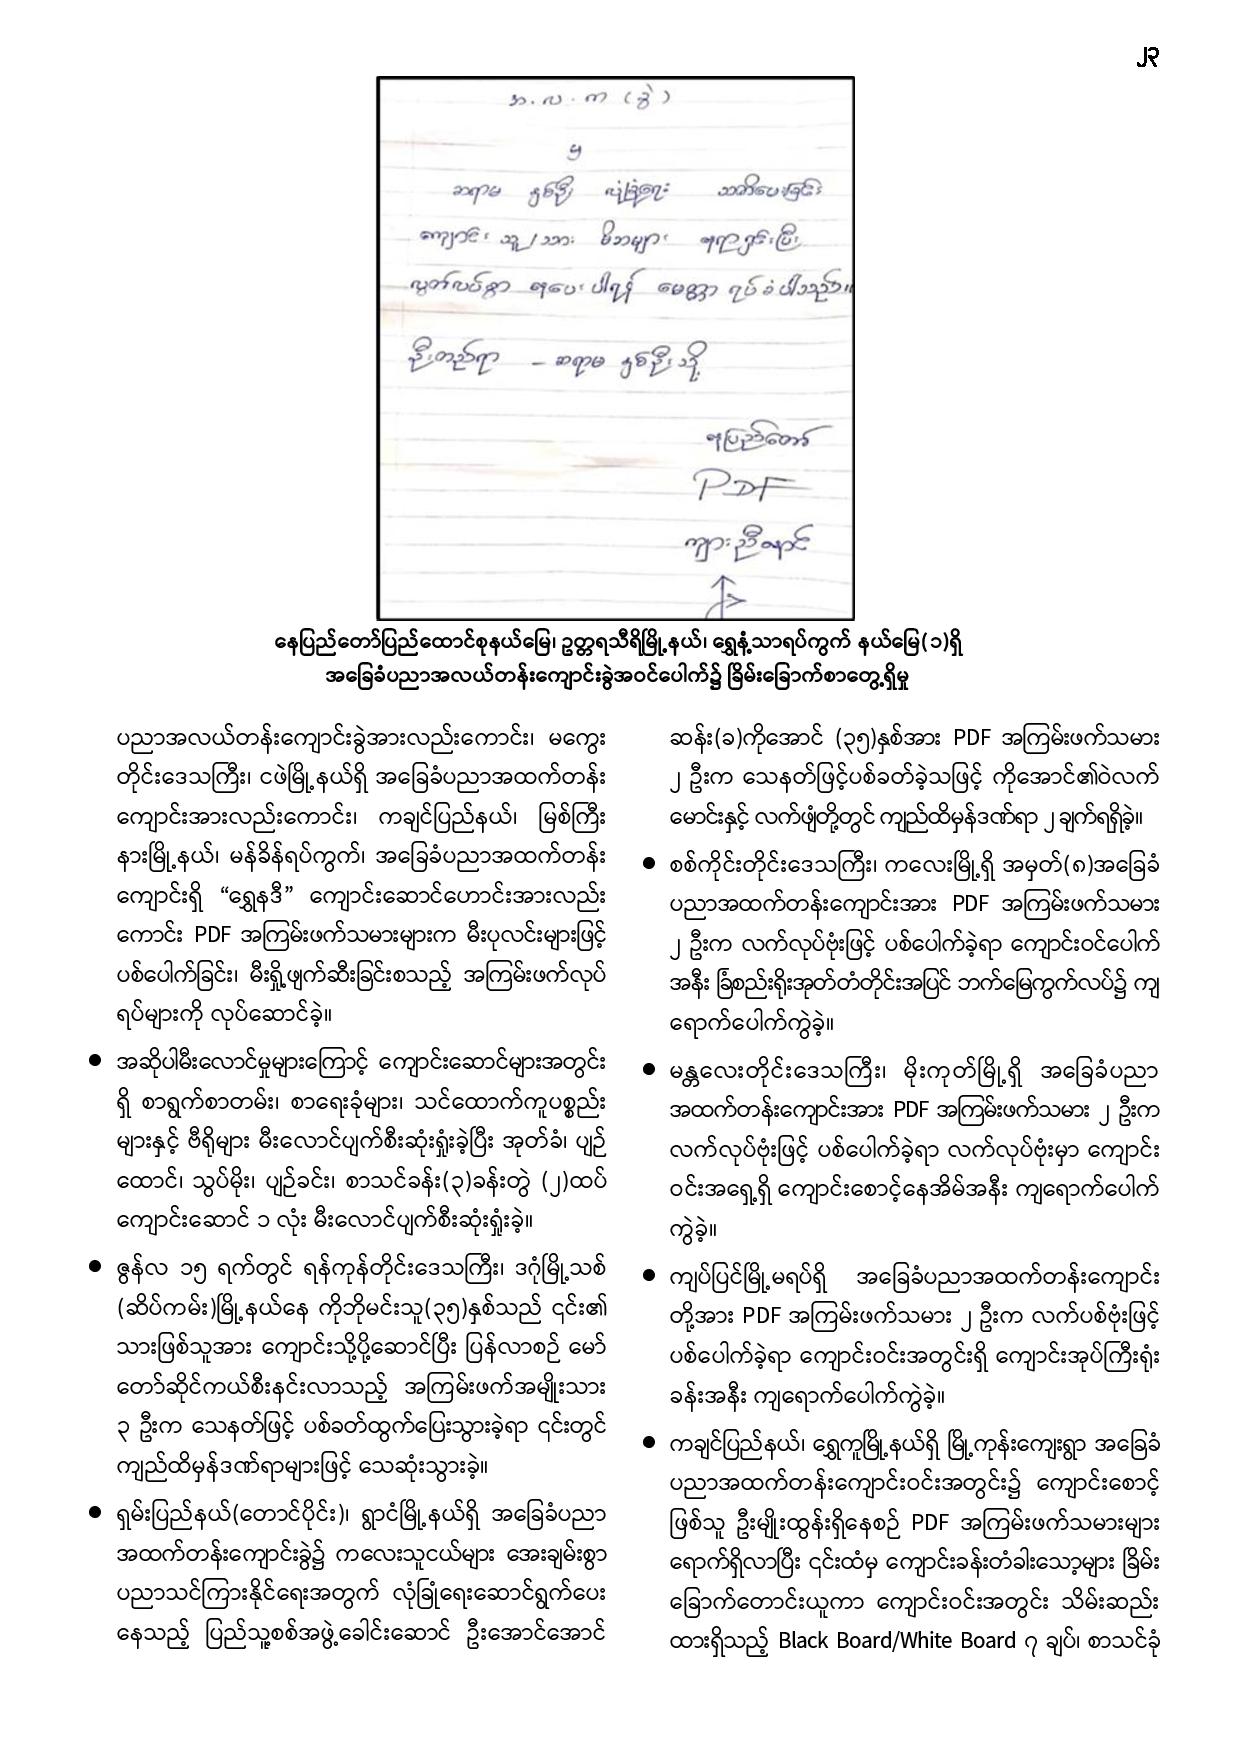 ၂၃
အ.လ.က (ခွဲ)
မှ
ဆရာမ နှစ်ဦး လုံခြုံရေး သတိပေးခြင်း
ကျောင်း သူ/သား မိဘများ
လွတ်လပ်စွာ နေပေးပါရန် မေတ္တာ ရပ်ခံပါသည်။
ဦးတည်ရာ – ဆရာမ နှစ်ဦးသို့
နေပြည်တော်
PDF
ကျားညီနောင်
နေပြည်တော်ပြည်ထောင်စုနယ်မြေ၊ ဥတ္တရသီရိမြို့နယ်၊ ရွှေနံ့သာရပ်ကွက် နယ်မြေ(၁)ရှိ
အခြေခံပညာအလယ်တန်းကျောင်းခွဲအဝင်ပေါက်၌ ခြိမ်းခြောက်စာတွေ့ရှိမှု
ပညာအလယ်တန်းကျောင်းခွဲအားလည်းကောင်း၊ မကွေး
တိုင်းဒေသကြီး၊ ငဖဲမြို့နယ်ရှိ အခြေခံပညာအထက်တန်း
ကျောင်းအားလည်းကောင်း၊ ကချင်ပြည်နယ်၊ မြစ်ကြီး
နားမြို့နယ်၊ မန်ခိန်ရပ်ကွက်၊ အခြေခံပညာအထက်တန်း
ကျောင်းရှိ “ရွှေနဒီ” ကျောင်းဆောင်ဟောင်းအားလည်း
ကောင်း PDF အကြမ်းဖက်သမားများက မီးပုလင်းများဖြင့်
ပစ်ပေါက်ခြင်း၊ မီးရှို့ဖျက်ဆီးခြင်းစသည့် အကြမ်းဖက်လုပ်
ရပ်များကို လုပ်ဆောင်ခဲ့။
● အဆိုပါမီးလောင်မှုများကြောင့် ကျောင်းဆောင်များအတွင်း
ရှိ စာရွက်စာတမ်း၊ စာရေးခုံများ၊ သင်ထောက်ကူပစ္စည်း
များနှင့် ဗီရိုများ မီးလောင်ပျက်စီးဆုံးရှုံးခဲ့ပြီး အုတ်ခံ၊ ပျဉ်
ထောင်၊ သွပ်မိုး၊ ပျဉ်ခင်း၊ စာသင်ခန်း(၃)ခန်းတွဲ (၂)ထပ်
ကျောင်းဆောင် ၁ လုံး မီးလောင်ပျက်စီးဆုံးရှုံးခဲ့။
● ဇွန်လ ၁၅ ရက်တွင် ရန်ကုန်တိုင်းဒေသကြီး၊ ဒဂုံမြို့သစ်
(ဆိပ်ကမ်း)မြို့နယ်နေ ကိုဘိုမင်းသူ(၃၅)နှစ်သည် ၎င်း၏
သားဖြစ်သူအား ကျောင်းသို့ပို့ဆောင်ပြီး ပြန်လာစဉ် မော်
တော်ဆိုင်ကယ်စီးနင်းလာသည့် အကြမ်းဖက်အမျိုးသား
၃ ဦးက သေနတ်ဖြင့် ပစ်ခတ်ထွက်ပြေးသွားခဲ့ရာ ၎င်းတွင်
ကျည်ထိမှန်ဒဏ်ရာများဖြင့် သေဆုံးသွားခဲ့။
● ရှမ်းပြည်နယ်(တောင်ပိုင်း)၊ ရွာငံမြို့နယ်ရှိ အခြေခံပညာ
အထက်တန်းကျောင်းခွဲ၌ ကလေးသူငယ်များ အေးချမ်းစွာ
ပညာသင်ကြားနိုင်ရေးအတွက် လုံခြုံရေးဆောင်ရွက်ပေး
နေသည့် ပြည်သူ့စစ်အဖွဲ့ခေါင်းဆောင် ဦးအောင်အောင်
ဆန်း(ခ)ကိုအောင် (၃၅)နှစ်အား PDF အကြမ်းဖက်သမား
၂ ဦးက သေနတ်ဖြင့်ပစ်ခတ်ခဲ့သဖြင့် ကိုအောင်၏ဝဲလက်
မောင်းနှင့် လက်ဖျံတို့တွင် ကျည်ထိမှန်ဒဏ်ရာ ၂ ချက်ရရှိခဲ့။
● စစ်ကိုင်းတိုင်းဒေသကြီး၊ ကလေးမြို့ရှိ အမှတ်(၈)အခြေခံ
ပညာအထက်တန်းကျောင်းအား PDF အကြမ်းဖက်သမား
၂ ဦးက လက်လုပ်ဗုံးဖြင့် ပစ်ပေါက်ခဲ့ရာ ကျောင်းဝင်ပေါက်
အနီး ခြံစည်းရိုးအုတ်တံတိုင်းအပြင် ဘက်မြေကွက်လပ်၌ ကျ
ရောက်ပေါက်ကွဲခဲ့။
● မန္တလေးတိုင်းဒေသကြီး၊ မိုးကုတ်မြို့ရှိ အခြေခံပညာ
အထက်တန်းကျောင်းအား PDF အကြမ်းဖက်သမား ၂ ဦးက
လက်လုပ်ဗုံးဖြင့် ပစ်ပေါက်ခဲ့ရာ လက်လုပ်ဗုံးမှာ ကျောင်း
ဝင်းအရှေ့ရှိ ကျောင်းစောင့်နေအိမ်အနီး ကျရောက်ပေါက်
ကွဲခဲ့။
● ကျပ်ပြင်မြို့မရပ်ရှိ အခြေခံပညာအထက်တန်းကျောင်း
တို့အား PDF အကြမ်းဖက်သမား ၂ ဦးက လက်ပစ်ဗုံးဖြင့်
ပစ်ပေါက်ခဲ့ရာ ကျောင်းဝင်းအတွင်းရှိ ကျောင်းအုပ်ကြီးရုံး
ခန်းအနီး ကျရောက်ပေါက်ကွဲခဲ့။
● ကချင်ပြည်နယ်၊ ရွှေကူမြို့နယ်ရှိ မြို့ကုန်းကျေးရွာ အခြေခံ
ပညာအထက်တန်းကျောင်းဝင်းအတွင်း၌ ကျောင်းစောင့်
ဖြစ်သူ ဦးမျိုးထွန်းရှိနေစဉ် PDF အကြမ်းဖက်သမားများ
ရောက်ရှိလာပြီး ၎င်းထံမှ ကျောင်းခန်းတံခါးသော့များ ခြိမ်း
ခြောက်တောင်းယူကာ ကျောင်းဝင်းအတွင်း သိမ်းဆည်း
ထားရှိသည့် Black Board/White Board ၇ ချပ်၊ စာသင်ခုံ